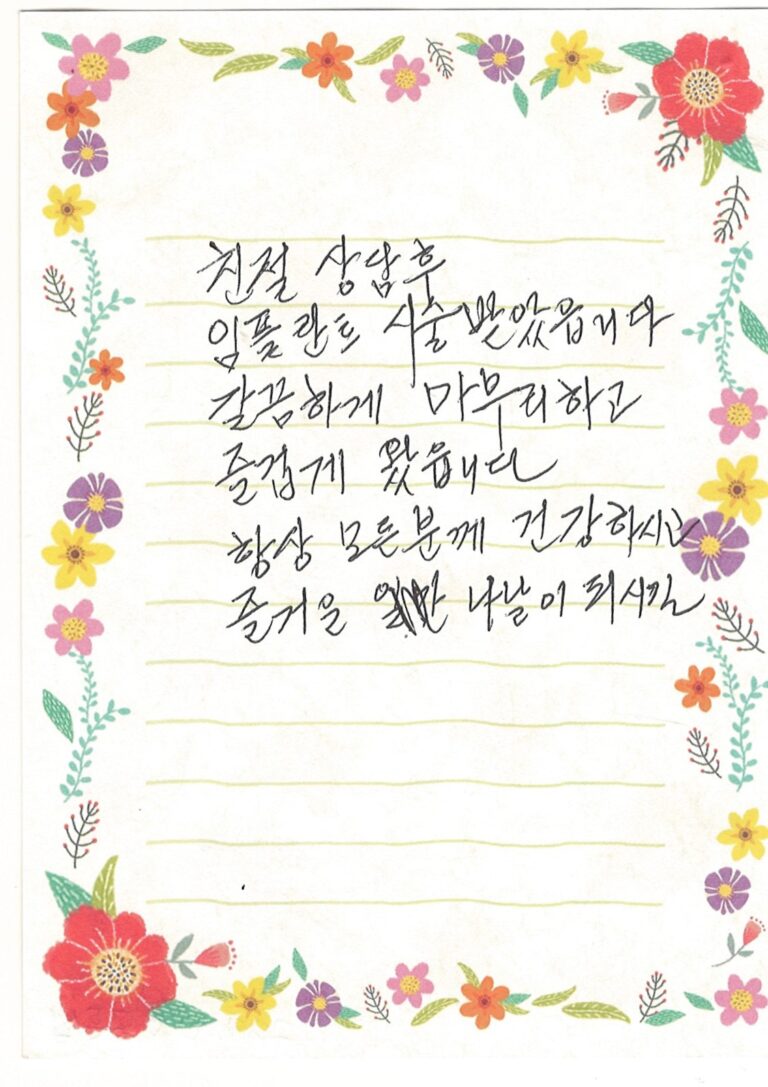 친절 상담후
임플란트 시술 받았읍니다
깔끔하게 마무리하고
즐겁게 왔읍니다
항상 모든분께 건강하시고
즐거운 나날이 되시길